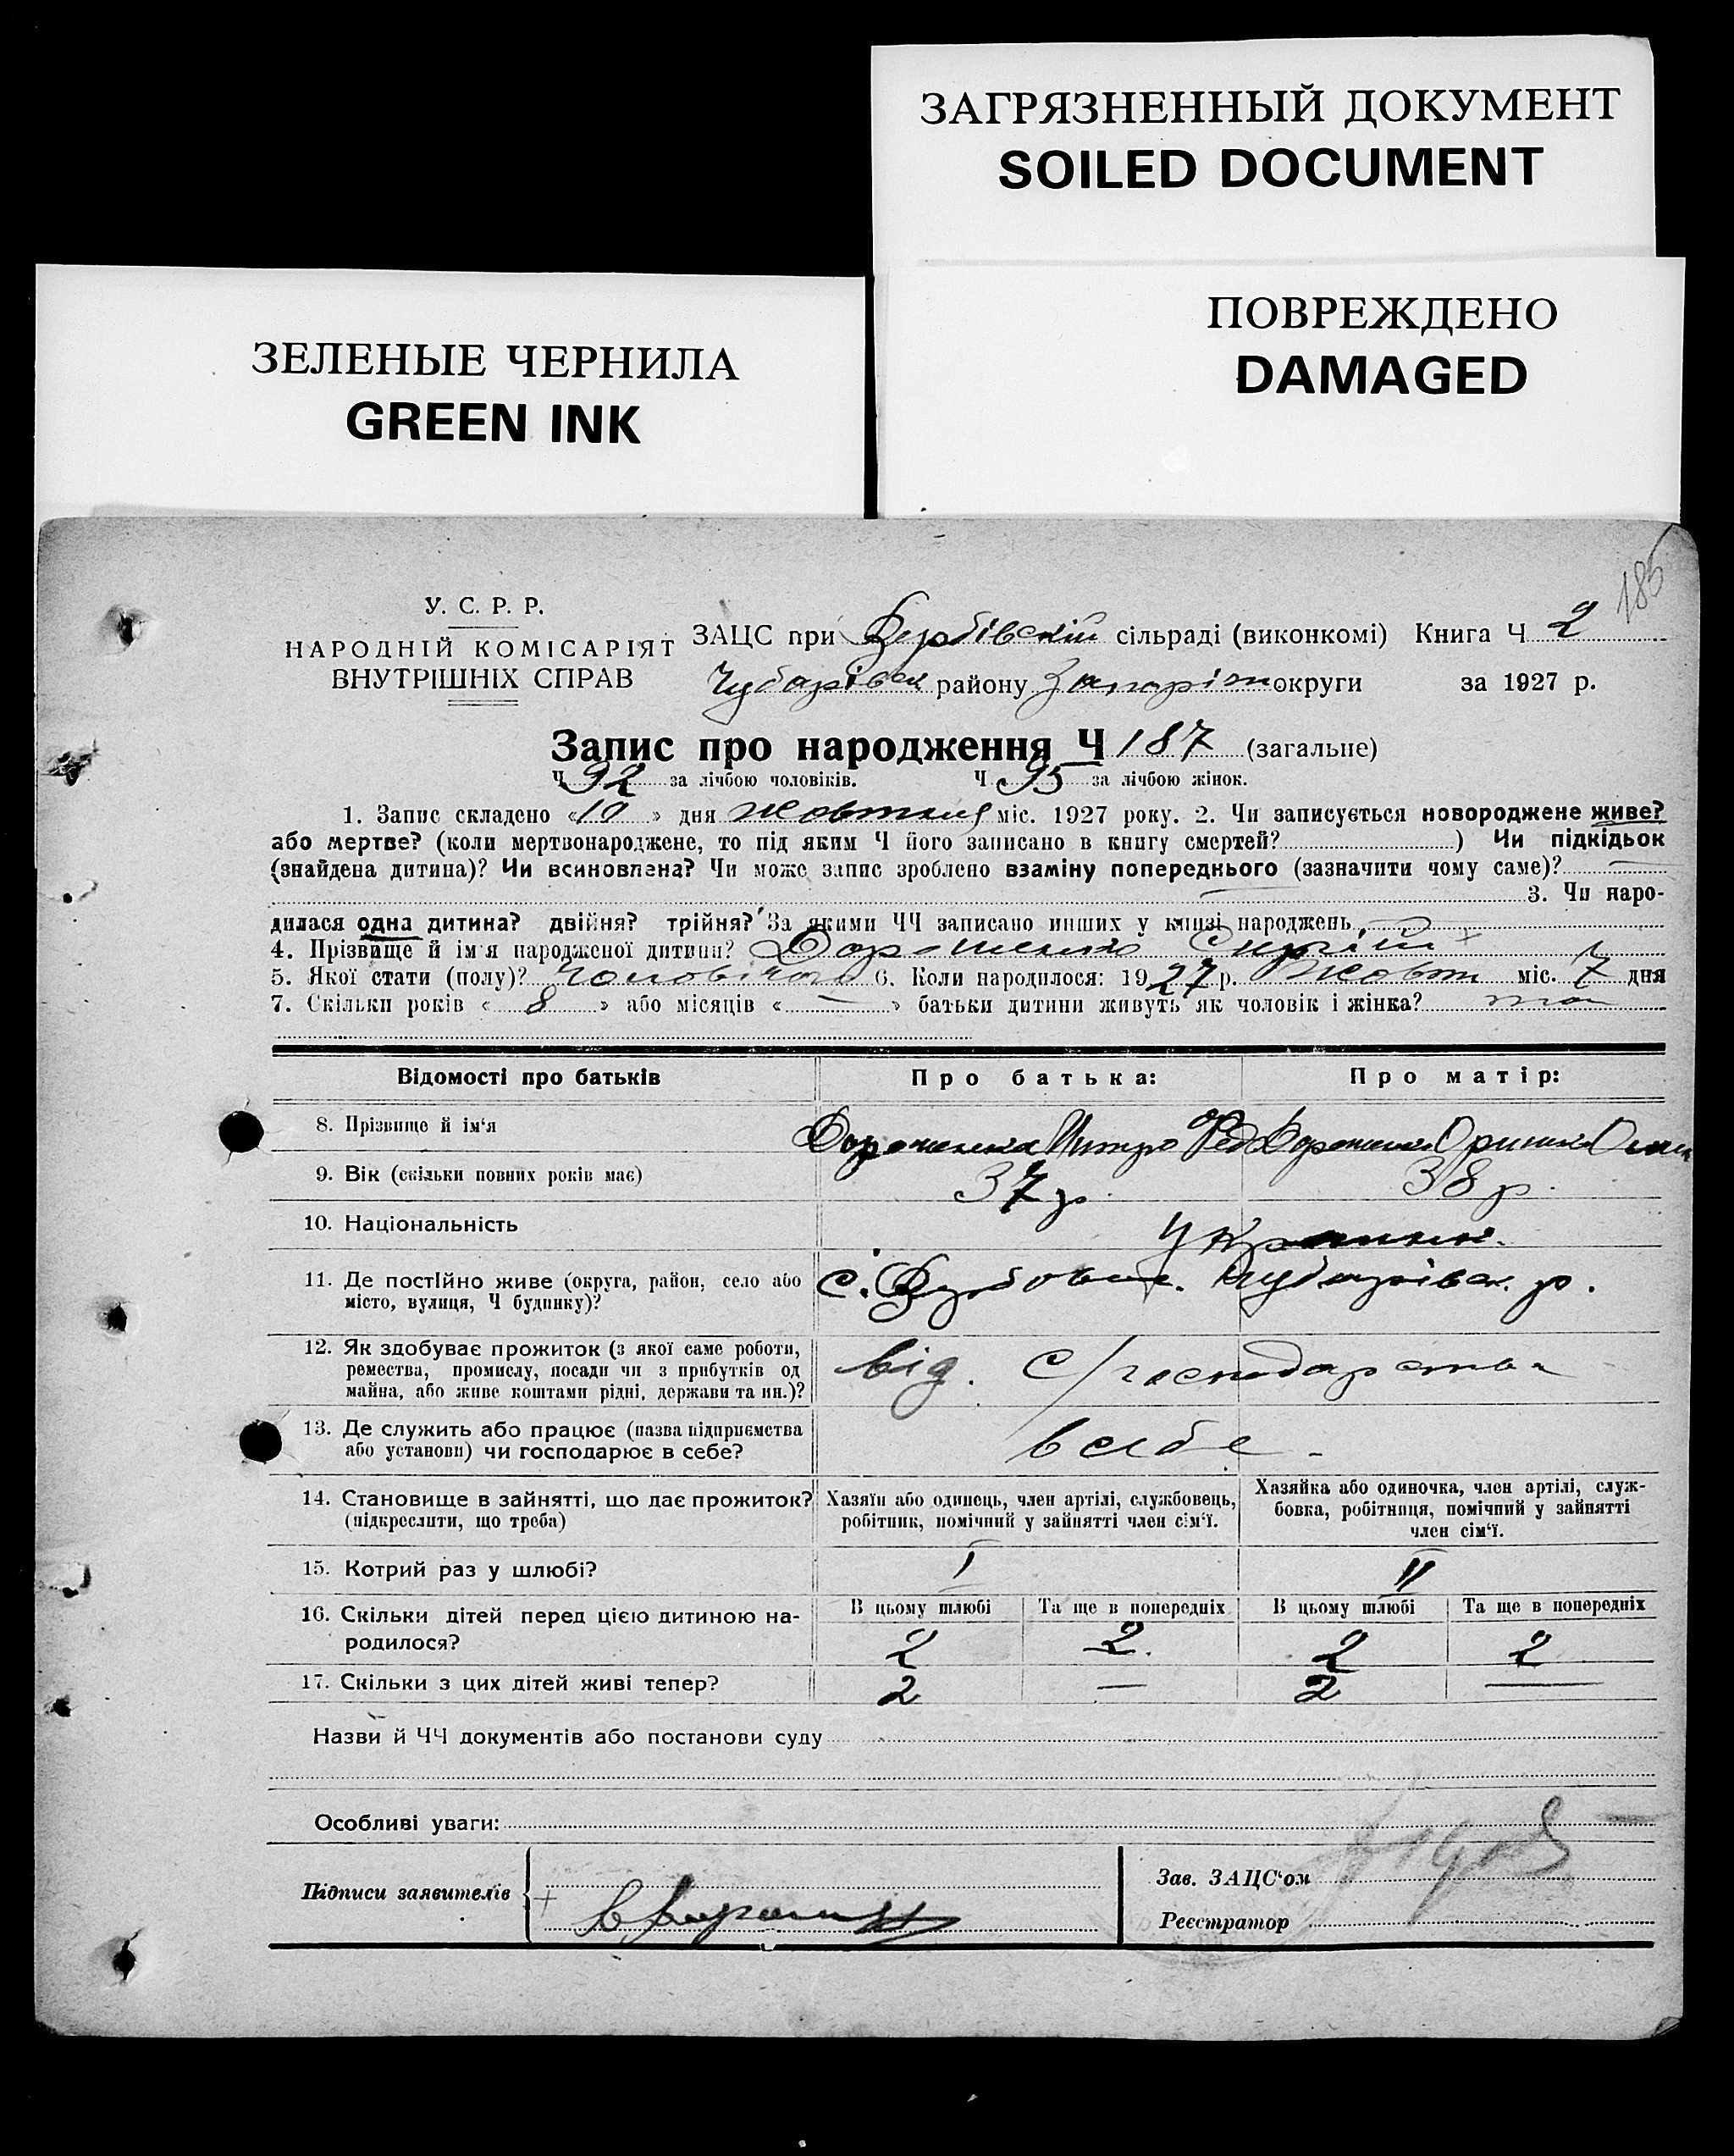 ЗАГРЯЗНЕННЫЙ ДОКУМЕНТ
SOILED DOCUMENT
ПОВРЕЖДЕНО
DAMAGED
ЗЕЛЕНЫЕ ЧЕРНИЛА
GREEN INK
185
У. С. Р. Р.
НАРОДНІЙ КОМІСАРІЯТ
ВНУТРІШНІХ СПРАВ
ЗАЦС при Вербівській сільраді (виконкомі) Книга Ч 2
Чубарівск району Запоріж округи за 1927 р.
Запис про народження Ч 187 (загальне)
Ч 92 за лічбою чоловіків. Ч 95 за лічбою жінок.
1. Запис складено «10» дня жовтня міс. 1927 року. 2. Чи записується новороджене живе?
або мертве? (коли мертвонароджене, то під яким Ч його записано в книгу смертей?) Чи підкідьок
(знайдена дитина)? Чи всиновлена? Чи може запис зроблено взаміну попереднього (зазначити чому саме)? —
— 3. Чи наро-
дилася одна дитина? двійня? трійня? За якими ЧЧ записано инших у книзі народжень —
4. Прізвище й ім'я народженої дитини? Дорошенко Сергій
5. Якої стати (полу)? Чоловічого 6. Коли народилося: 1927 р. Жовт міс. 7 дня
7. Скільки років «8» або місяців «—» батьки дитини живуть як чоловік і жінка? так
Відомості про батьків
Про батька:
Про матір:
8. Прізвище й ім'я
Дорошенко Митро Фед
Дорошенко Оришка
9. Вік (скільки повних років має)
37 р.
38 р.
10. Національність
Україн.
11. Де постійно живе (округа, район, село або
місто, вулиця, Ч будинку)?
с. Вербове. Чубарівск. р.
12. Як здобуває прожиток (з якої саме роботи,
ремества, промислу, посади чи з прибутків од
майна, або живе коштами рідні, держави та ин.)?
від. С/господарства
13. Де служить або працює (назва підприємства
або установи) чи господарює в себе?
в себе
14. Становище в зайнятті, що дає прожиток?
(підкреслити, що треба)
Хазяїн або одинець, член артілі, службовець,
робітник, помічний у зайнятті член сім'ї.
Хазяйка або одиночка, член артілі, служ-
бовка, робітниця, помічний у зайнятті
член сім'ї.
15. Котрий раз у шлюбі?
I
II
16. Скільки дітей перед цією дитиною на-
родилося?
В цьому шлюбі Та ще в попередніх В цьому шлюбі Та ще в попередніх
2 2. 2 2
17. Скільки з цих дітей живі тепер?
2 — 2 —
Назви й ЧЧ документів або постанови суду
Особливі уваги:
Підписи заявителів
Зав. ЗАЦС'ом
Реєстратор